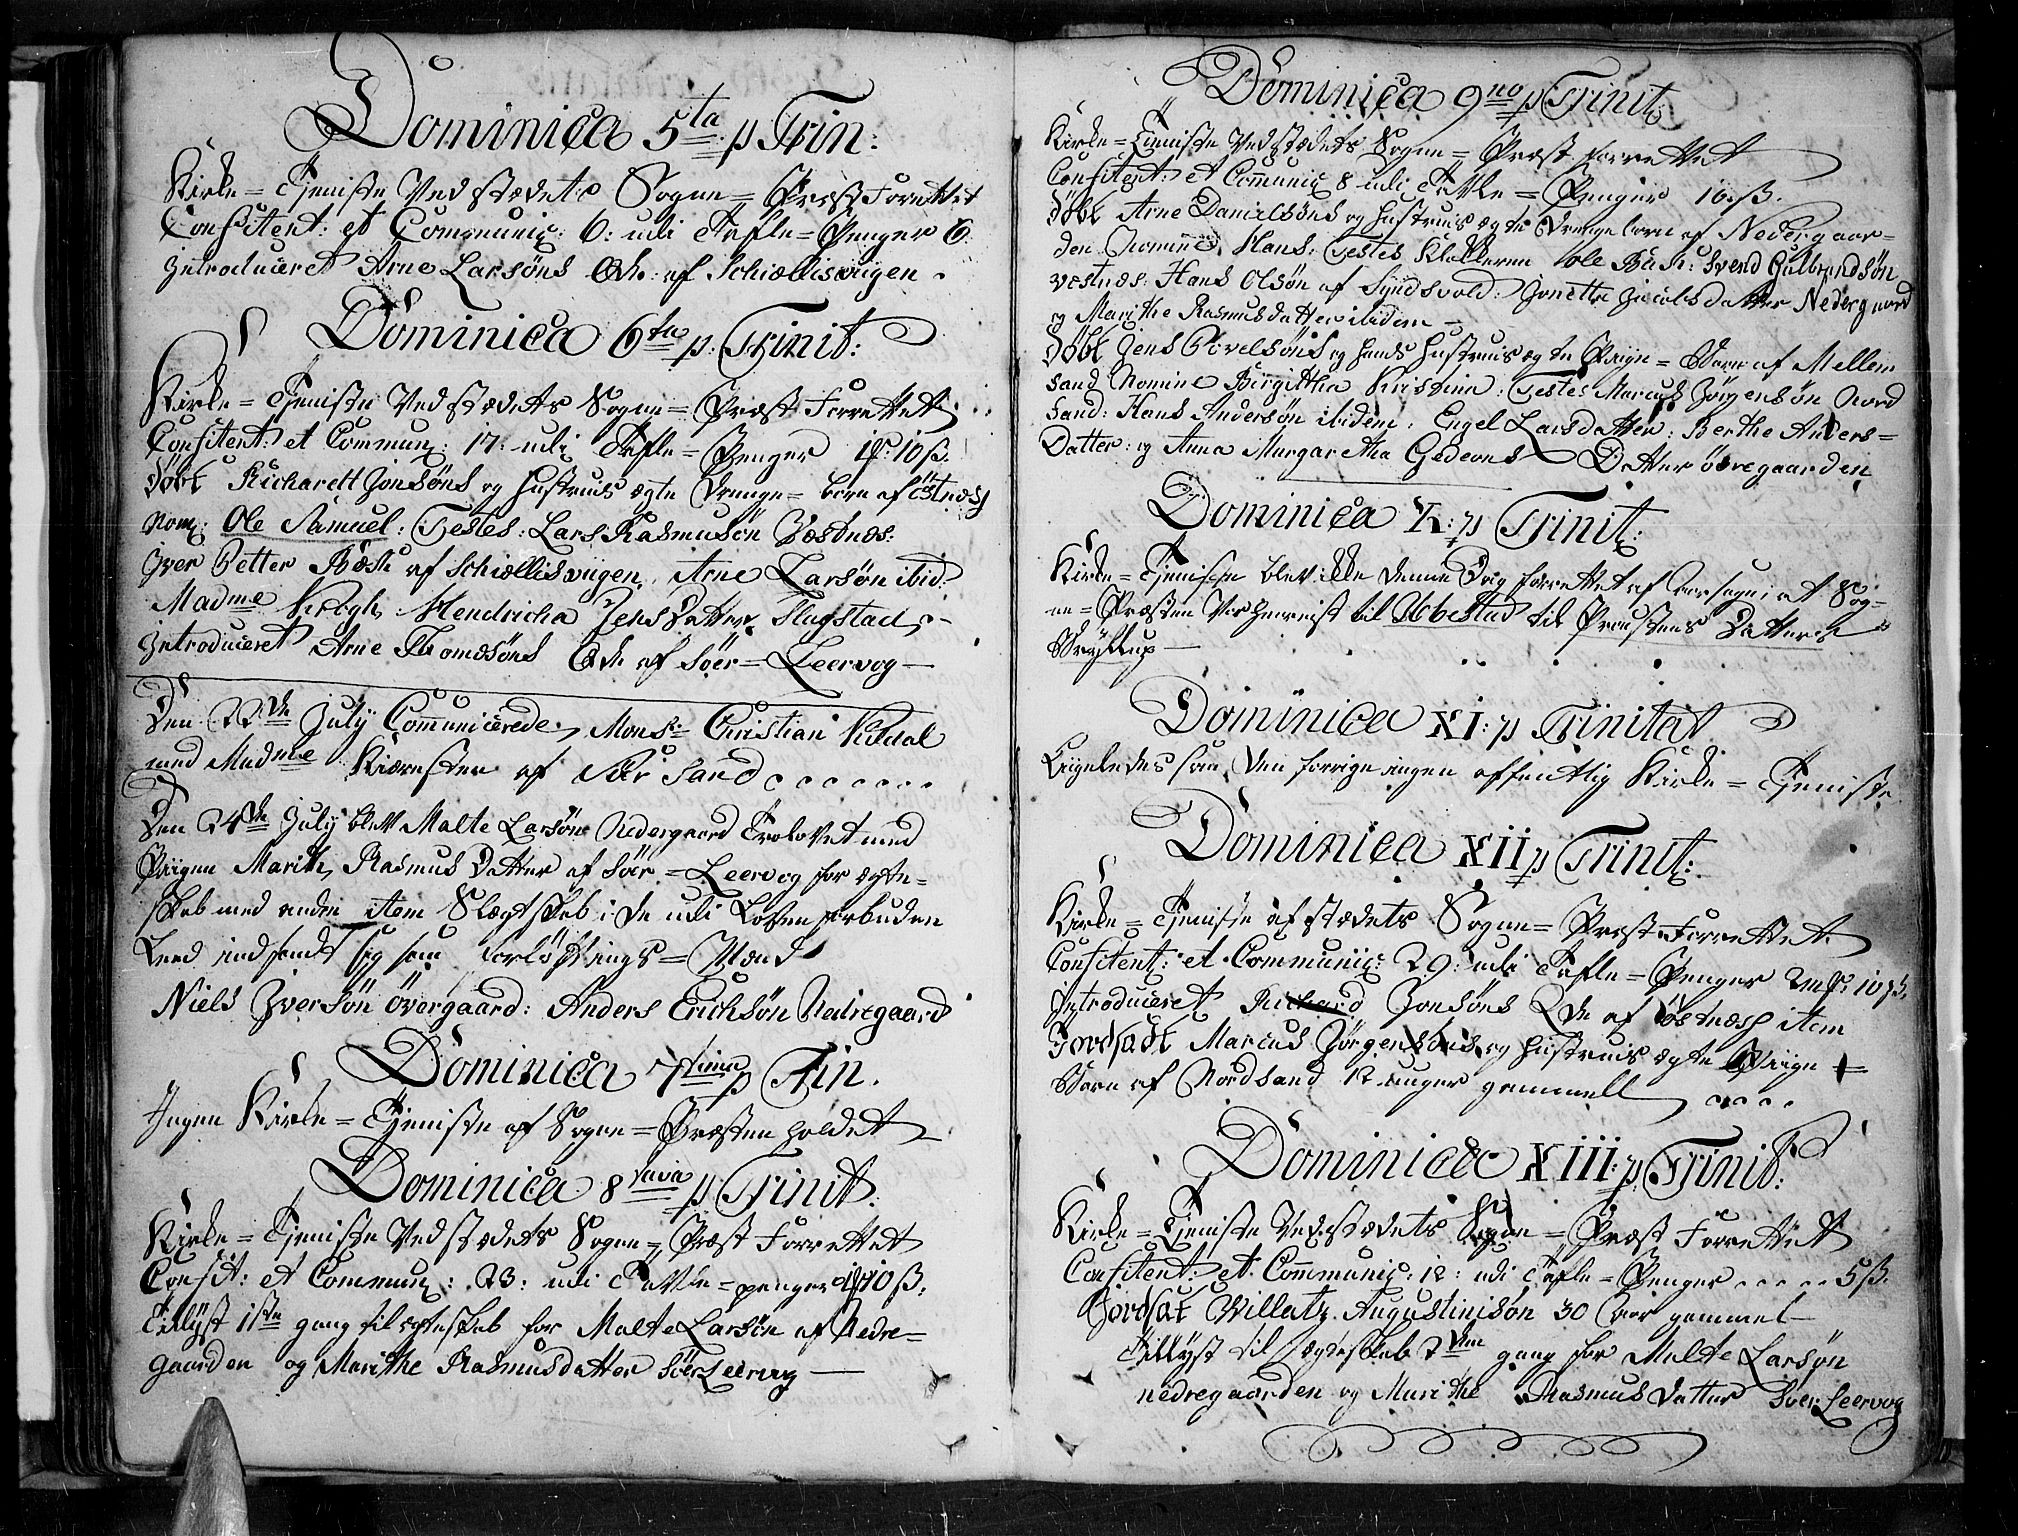 Dominica 5ta p Trin:
Kirke = Tieniste Ved stædets Sogne = Præst Forrettet
Confitent: et Communic: 6: udi Tafle = Penger 6
Introduceret Arne Larsöns Qde: af Schiællisvigen
Dominica 6ta p: Trinit:
Kirke = Tieniste Ved stædets Sogne = Præst Forrettet
Confitent: et Commun: 17: udi Tafle = Penger 10 ß
döbt Richarett Jonsöns og hustrues ægte Drenge = barn af östnæs
Nom: Ole Samuel: Testes: Lars Rasmusön Væstnæs:
Iver Petter Bæsk af Schiællisvigen, Arne Larsön ibid:
Madme Krogh, Hendricha Jens Datter, Slagstad
Introduceret Arne Thomesöns Qde af Söer = Leervog
Den 22de July Communicerede, Monsr Christian Kildal
med Madme Kieresten af Sör Sand
Den 24de July blev Malte Larsön Nedergaard Trolovet med
Piigen Marith Rasmus Datter af Sör = Leervog for ægte=
skab med anden item Slægtskab i de udi Loven forbuden
Leed indfandt sig som Forlöftings = Mænd
Niels Iversön övergaard: Anders Erichsön Nedregaard
Dominica 7tima p Trin.
Ingen Kirke = Tieniste af Sogne = Præsten holdet
Dominica 8tava p Trinit:
Kirke = Tieniste Ved stædets Sogne = Præst Forrettet
Confit: et Commun: 23: udi Tavle = penger 10 ß.
Tillyst 1ste gang til egteskab for Malte Larsön af Nedre=
gaarden og Marithe Rasmusdatter Sör Leervog
Dominica 9no p Trinit:
Kirke = Tieniste Ved stædets Sogne = Præst forrettet
Confitent: et Communic 8 udi Tavle = Penger 16 ß.
döbt Arne Danielsöns og hustrues ægte Drenge barn af Nedergaar=
den Nomine Hans: Testes Klokkeren Ole Bask: Svend Gulbrandsön
vestnes: Hans Olsön af Syndsvold: Jonetta Jacobsdatter Nedergaard
og Marithe Rasmusdatter ibidem
döbt Jens Povelsöns og hands hustrues ægte Piige = Barn af Mellem
Sand Nomine Birgittha Kristina: Testes Marcus Jörgensön Nord
Sand: Hans Andersön ibidem, Engel Larsdatter: Berthe Anders=
Datter: og Anna Margaretha Gedeons Datter övregaarden
Dominica X: p Trinit:
Kirke = Tieniste blev ikke denne Dag forrettet af Aarsage, at Sog=
ne = Præsten Var henreist til Ibbestad til Proustens Datters
Brÿllup
Dominica XI: p Trinitat
Ligeledes som den forrige ingen offentlig Kirke = Tieniste
Dominica XII p Trinit:
Kirke = Tieniste af stædets Sogne = Præst Forrettet.
Confitent: et Communic: 29: udi Tafle = Penger 2 mk: 10 ß.
Introduceret Richard Jonsöns Qde af östnæs item
Jordsadt Marcus Jörgensöns og hustrues ægte Piige =
Barn af Nordsand 12 uuger gammell
Dominica XIII: p Trinit:
Kirke = Tieniste Ved stædets Sogne = Præst Forrettet
Confitent: et Communic: 12: udi Tafle = Penger . . . . . 5 ß.
Jordsat Willatz Augustinisön 30 Aar gammel
Tillyst til ægteskab 2den gang for Malte Larsön
nedregaarden og Marithe Rasmus Datter Söer: Leervog